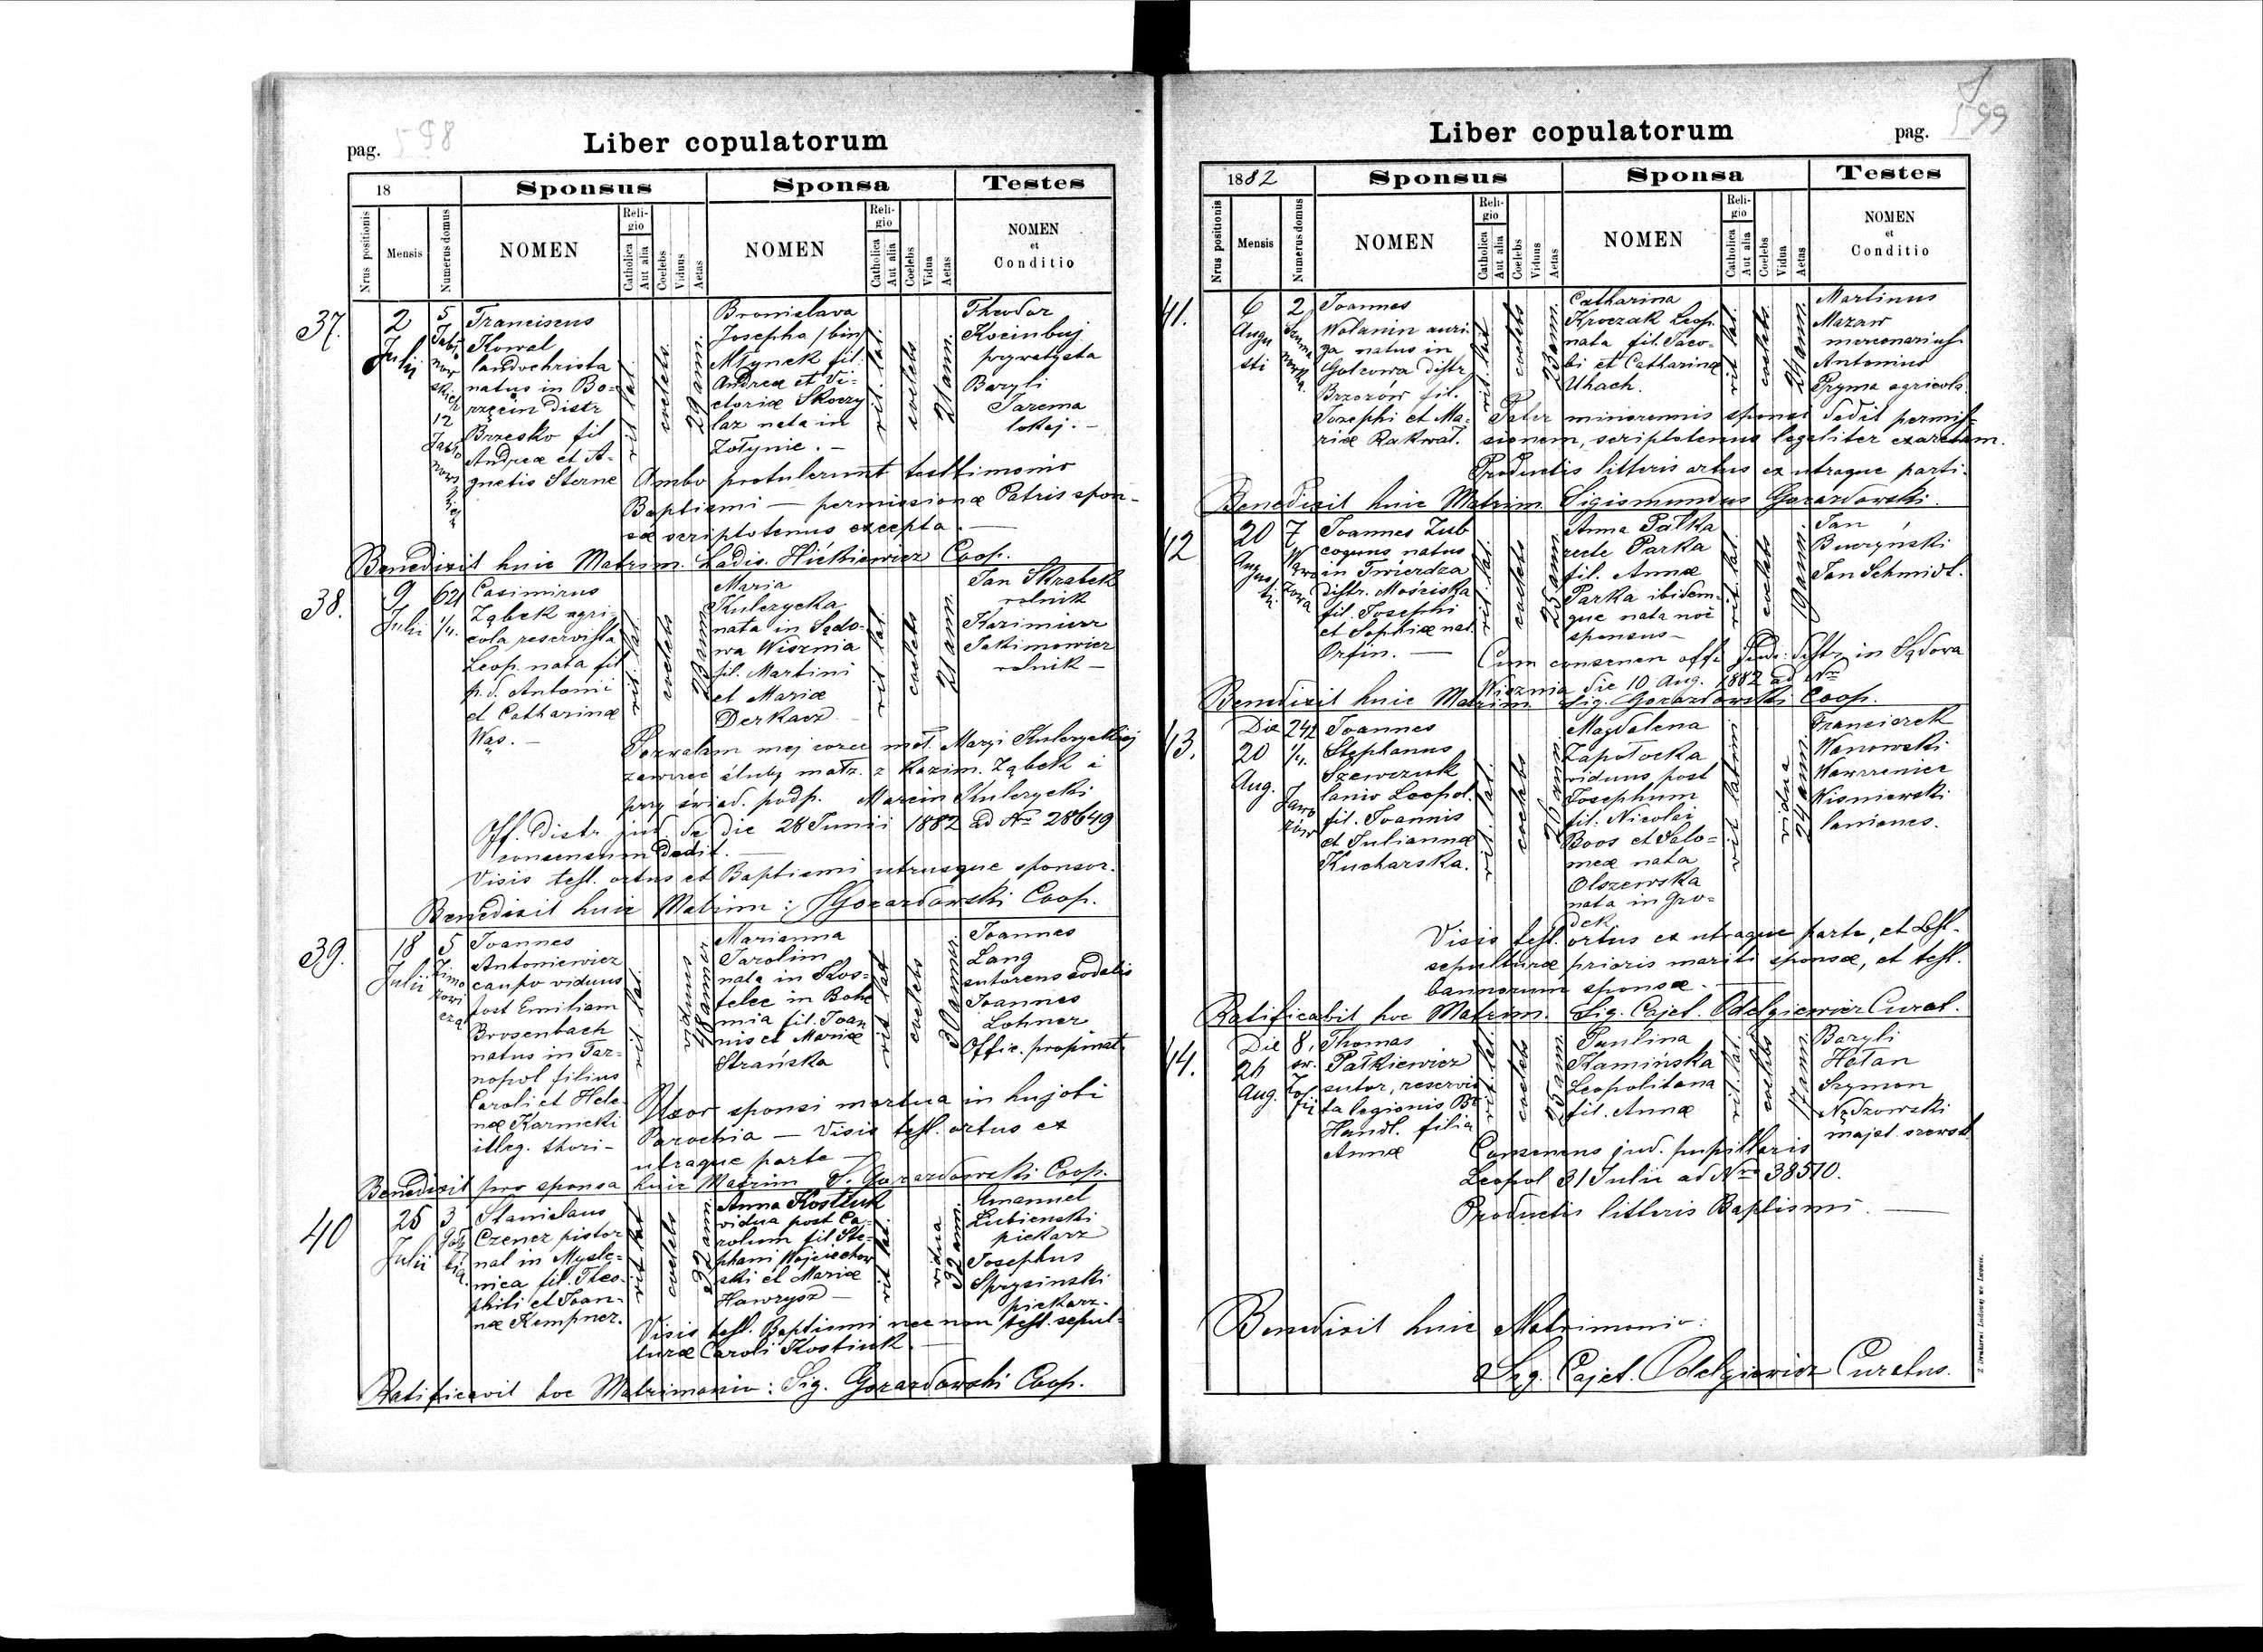 pag. 598
Liber copulatorum
18
Sponsus
Sponsa
Testes
Nrus positionis
Mensis
Numerus domus
NOMEN
Religio
Catholica
Aut alia
Coelebs
Viduus
Aetas
NOMEN
Religio
Catholica
Aut alia
Coelebs
Vidua
Aetas
NOMEN
et
Conditio
37.
2
Julii
5
12
Franciscus
Kowal
landochrista
natus in Bo-
rzęcin Distr
Brzesko fil
Andreæ et A-
gnetis Sterne
rit lat
coelebs
29 ann.
Bronislava
Josepha /bin/
Młynek fil.
Andreæ et Vi-
ctoriæ Skoczy
laz nata in
Zołynie. —
rit. lat.
coelebs
21 ann.
Theodor
Kocinbuj
prywatysta
Baryli
Jarema
lokaj. —
Ambo protulerunt testtimonio
Baptismi — permissionæ Patris spon-
sæ scriptotenus excepta. —
Benedixit huic Matrim. Ladis. Hićkiewicz Coop.
38.
9
Julii
621
1/4.
Casimirus
Ząbek agri-
cola reservista
Leop. nata fil
p. d. Antoni
et Catharinæ
Wąs. —
rit lat
coelebs
28 ann
Maria
Kulczycka
nata in Sądo-
wa Wisznia
fil. Martini
et Mariæ
Derkacz
rit lat.
coelebs
21 ann.
Jan Skrabek
rolnik
Kazimierz
Jakimowicz
rolnik —
Pozwalam mej corce mał. Maryi Kulczyckiej
zawrzec śluby małz. z Kazim. Ząbek i
przy świad. podp. Marcin Kulczycki
Off. Distr. jud. de die 28 Junii 1882 ad No 28649
consensum dedit. —
Visis test. ortus et Baptismi utrusque sponsor.
Benedixit huic Matrim: SGorazdowski Coop.
39.
18
Julii
5
Joannes
Antoniewicz
caupo viduus
post Emiliam
Brosenbach
natus in Tar-
nopol filius
Caroli et Hele-
næ Karnicki
illeg. thori-
rit lat
viduus
48 annor
Marianna
Jarolim
nata in Kos-
telec in Bohe
mia fil. Joan
nis et Mariæ
Strańska
rit lat
coelebs
30 annor.
Joannes
Lang
sutorens sodalis
Joannes
Lohner
Offic. propinat.
Uxor sponsi mortua in hujati
Parochia — Visis test. ortus ex
utraque parte —
Benedixit pro sponsa huic Matrim S. Gorazdowski Coop.
40
25
Julii
3
Stanislaus
Czenez pistor
nat in Mysle-
nica fil. Theo-
phili et Joan-
næ Kempner.
rit lat
coelebs
32 ann
Anna Kostiuk
vidua post Ca-
rolum fil Ste-
phani Wojciechow
ski et Mariæ
Hawrysz —
rit lat.
vidua
32 ann.
Emanuel
Lubienski
piekarz
Josephus
Sprysinski
piekarz.
Visis test. Baptismi nec non test. sepul-
turæ Caroli Kostiuk. —
Ratificavit hoc Matrimonio: Sig. Gorazdowski Coop.
Liber copulatorum
pag. 599
1882
Sponsus
Sponsa
Testes
Nrus positionis
Mensis
Numerus domus
NOMEN
Religio
Catholica
Aut alia
Coelebs
Viduus
Aetas
NOMEN
Religio
Catholica
Aut alia
Coelebs
Vidua
Aetas
NOMEN
et
Conditio
41.
6
Augu
sti
2
Joannes
Wolanin auri-
ga natus in
Golcowa distr
Brzozów fil.
Josephi et Ma-
riæ Rakwał.
rit. lat
coelebs
23 ann.
Catharina
Kroczak Leop.
nata fil. Jaco-
bi et Catharinæ
Uhach.
rit lat.
coelebs.
24 ann.
Martinus
Mazaw
mercenarius
Antonius
Pryma agricola.
Pater minorennis sponsi dedit permis-
sionem, scriptotenus legaliter exaratam.
Productis litteris ortus ex utraque parti.
Benedixit huic Matrim. Sigismundus Gorazdowski.
42
20
Augus
ti
7
Joannes Zub
coguus natus
in Twierdza
distr. Mościska
fil. Josephi
et Sophiæ nat.
Orfin. —
rit lat.
coelebs
25 ann
Anna Pałka
recte Parka
fil. Annæ
Parka ibidem-
que nata noi
sponsus—
rit lat.
coelebs
19 ann.
Jan
Buczyński
Jan Schmidt.
Cum consensu offi Jud: distr. in Sądowa
Wisznia die 10 Aug. 1882 ad No
Benedixit huic Matrim Sig. Gorazdowski Coop.
43.
Die
20
Aug.
242
1/4.
Joannes
Stephanus
Szewczuk
lanio Leopol.
fil. Joannis
et Juliannæ
Kucharska.
rit. lat.
coelebs
26 ann
Magdalena
Zapotocka
viduus post
Josephum
fil. Nicolai
Boos et Salo-
meæ nata
Olszewska
nata in Gro-
dek
rit latini
vidua
24 ann.
Franciszek
Wanowski
Wawrzeniec
Wisniewski
laniones.
Visis test. ortus ex utraque parte, et test.
sepulturæ prioris mariti sponsæ, et test.
bannorum sponsæ. —
Ratificabit hoc Matrim. Sig. Cajet. Odelgiewicz Curat.
44.
Die
26
Aug.
8,
św.
Zo
fii
Thomas
Pałkiewicz
sutor, reservis
ta legionis Bo
Handl. filia
Annæ
rit lat.
coelebs
25 ann.
Paulina
Kamińska
Leopolitana
fil. Annæ
rit. lat.
coelebs
17 ann.
Baryli
Hałan
Szymon
Nędzowski
majst. szewsk
Consensus jud. pupillaris
Leopol 31 Julii ad Nro 38510.
Productis litteris Baptismi. —
Benedixit huic Matrimonio:
Sig. Cajet. Odelgiewicz Curatus.
Z Drukarni Ludowej we Lwowie.